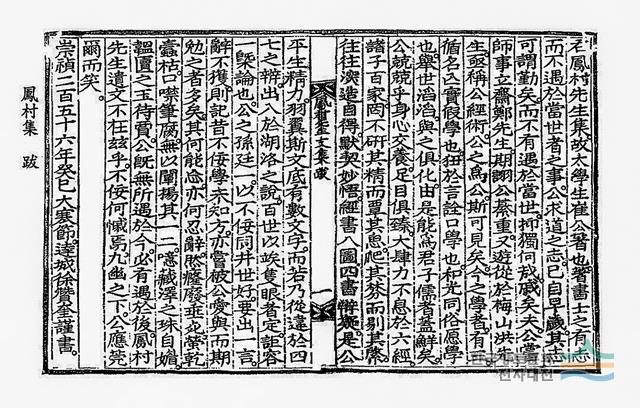 右鳳村先生集故太學生崔公著也。著書士之有志
而不遇於當世者之事。公求道之志已自早歲其志
可謂勤矣。而不有遇於當世。抑獨何哉矣夫。公嘗
師事立齋鄭先生期詡公綦重。又遊從於梅山洪先
生亟稱公經術。公之爲公斯可見矣。今之學者。有
循名實假學也。狂於言詮口學也。和光同俗愿學
也。舉世滔滔。與之俱化。由是能爲君子儒者蓋鮮矣。
公兢兢乎身心交養。足目俱臻。大肆力不息於六經
諸子百家。罔不硏其精而覃其思。爬其棼而剔其縻。
往往深造自得。默契妙悟。經書八圖四書辨疑。是公
鳳村先生文集跋
一
平生精力。羽翼斯文。底有數文字。而若乃從違於四
七之辨。出入於湖洛之說。百世以竢隻眼者定。詎容
一槩論也。公之孫廷一。以不佞同井世好。要出一言。
辭不獲。則記昔不佞學未知方。亦嘗被公愛與而期
勉之者多矣。其何能忘。亦何忍辭。然癃癈垂死。榮乾
蠹枯。口噤筆腐。無以闡揚其一二。噫。藏澤之珠自媚。
韞匵之玉待賈。公旣無所遇於今。必有遇於後。鳳村
先生遺文不在玆乎。不佞何慽焉。九幽之下。公應莞
爾而笑。
崇禎二百五十六年癸巳大寒節。達城徐贊奎謹書。
鳳村集 跋
전자대전